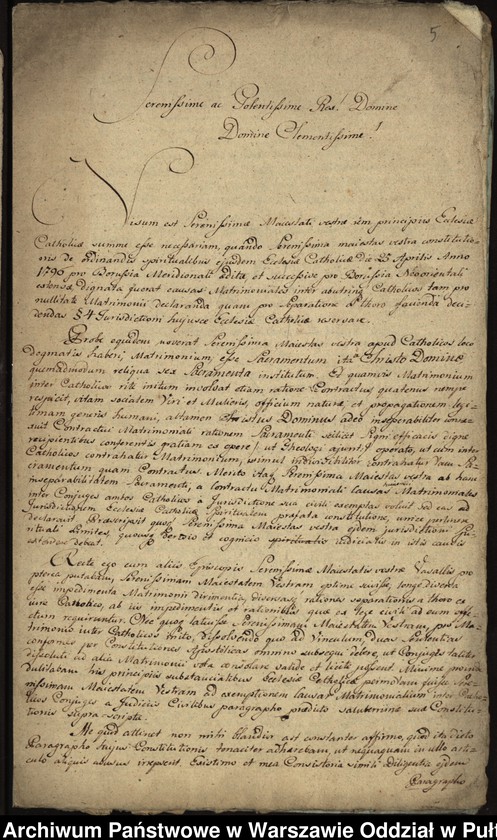 5
Serenissime ac Potentissime Rex! Domine
Domine Clementissime!
Visum est Serenissimæ Maiestati vestræ rem principiis Ecclesiæ
Catholicæ summe esse necessariam, quando Serenissima maiestas vestra constitutio-
nis de ordinandis spiritualibus ejusdem Ecclesiæ Catholicæ die 25 Aprilis Anno
1796 pro Borussia Meridionali edita et successive pro Borussia Neoorientali
extensa dignata fuerat causas Matrimoniales inter abutring Catholicos tam pro
nullitate Matrimonii declaranda quam pro separatione a thoro facienda deci-
dendas §4 Jurisdictioni hujusce Ecclesiæ Catholicæ reservare.
Probe equidem noverat Serenissima Maiestas vestra apud Catholicos loco
dogmatis haberi, Matrimonium esse Sacramentum ita a Christo Domino
quemadmodum reliqua sex Sacramenta institutum. Et quamvis Matrimonium
inter Catholicos rite initum involvat etiam rationem Contractus quatenus nempe
respicit, vitam socialem Viri et Mulieris, officium naturæ, et propagationem legi-
timam generis humani, attamen Christus Dominus adeo inseparabiliter
Contractui Matrimoniali rationem Sacramenti scilicet signi efficacis digne
recipientibus conferentis gratiam ex opere, ut Theologi ajunt, operato, ut cum inter
Catholicos contrahitur Matrimonium, simul indivisibiliter contrahatur tam Sa-
cramentum quam Contractus. Merito itaq Serenissima Maiestas vestra ab hanc
inseparabilitatem Sacramenti, a Contractu Matrimoniali causas Matrimoniales
inter Conjuges ambos Catholicos a Jurisdictione sua civili exemptas voluit sed eas ad
Jurisdictionem Ecclesiæ Catholicæ Spiritualem præfata constitutione, unice pertinere
declaravit. Præscripsit quoq Serenissima Maiestas vestra eidem jurisdictioni Spi-
rituali Limites, quousq pertio et cognicio spiritualis iudicialis in istis causis
extendere debeat.
Recte ego cum aliis Episcopis Serenissimæ Maiestatis vestræ Vasallis pro
pterea putabam Serenissimam Maiestatem Vestram optime scivisse, longe diversa
esse impedimenta Matrimonii dirimentia, diversas rationes separationis a thoro ex
iure Catholico, ab iis impedimentis et rationibus quæ ex lege civili ad eum effe-
ctum requiruntur. Nec quoq latuisse Serenissimam Maiestatem Vestram, pro Ma-
trimonio inter Catholicos inito, dissolvendo quo ad Vinculum, duas Sententias
conformes per Constitutiones Apostolicas omnino subsequi debere, ut Conjuges taliter
dissoluti in alia Matrimonii vota convolare valide et licite possent. Minime porro
dubitabam his principiis substancialibus Ecclesiæ Catholicæ permotam fuisse Sere-
nissimam Maiestatem Vestram ad exemptionem causar Matrimonialium inter Catho-
licos Conjuges a Judiciis Civilibus paragrapho prædicto saluberrimæ suæ Constitu-
tionis supra-scripta.
Me quod attinet non mihi blandior ast constanter affirmo, quod ita dicto
Paragrapho hujus Constitutionis tenaciter adhærebam, ut nequaquam in ullo arti-
culo aliquis abusus irrepserit. Existimo et mea Consistoria simili diligentia eidem
Paragrapho
Archiwum Państwowe w Warszawie Oddział w Puł